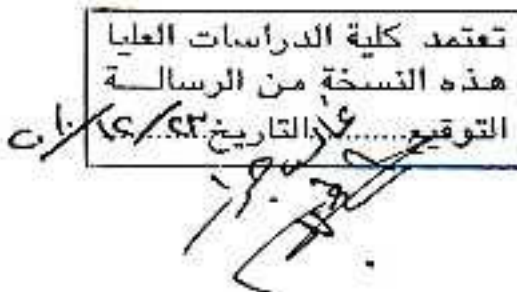 تعتمد كلية الدراسات العليا
هذه النسخة من الرسالــة
التوقيع.........التاريخ ٢٣/١٢/